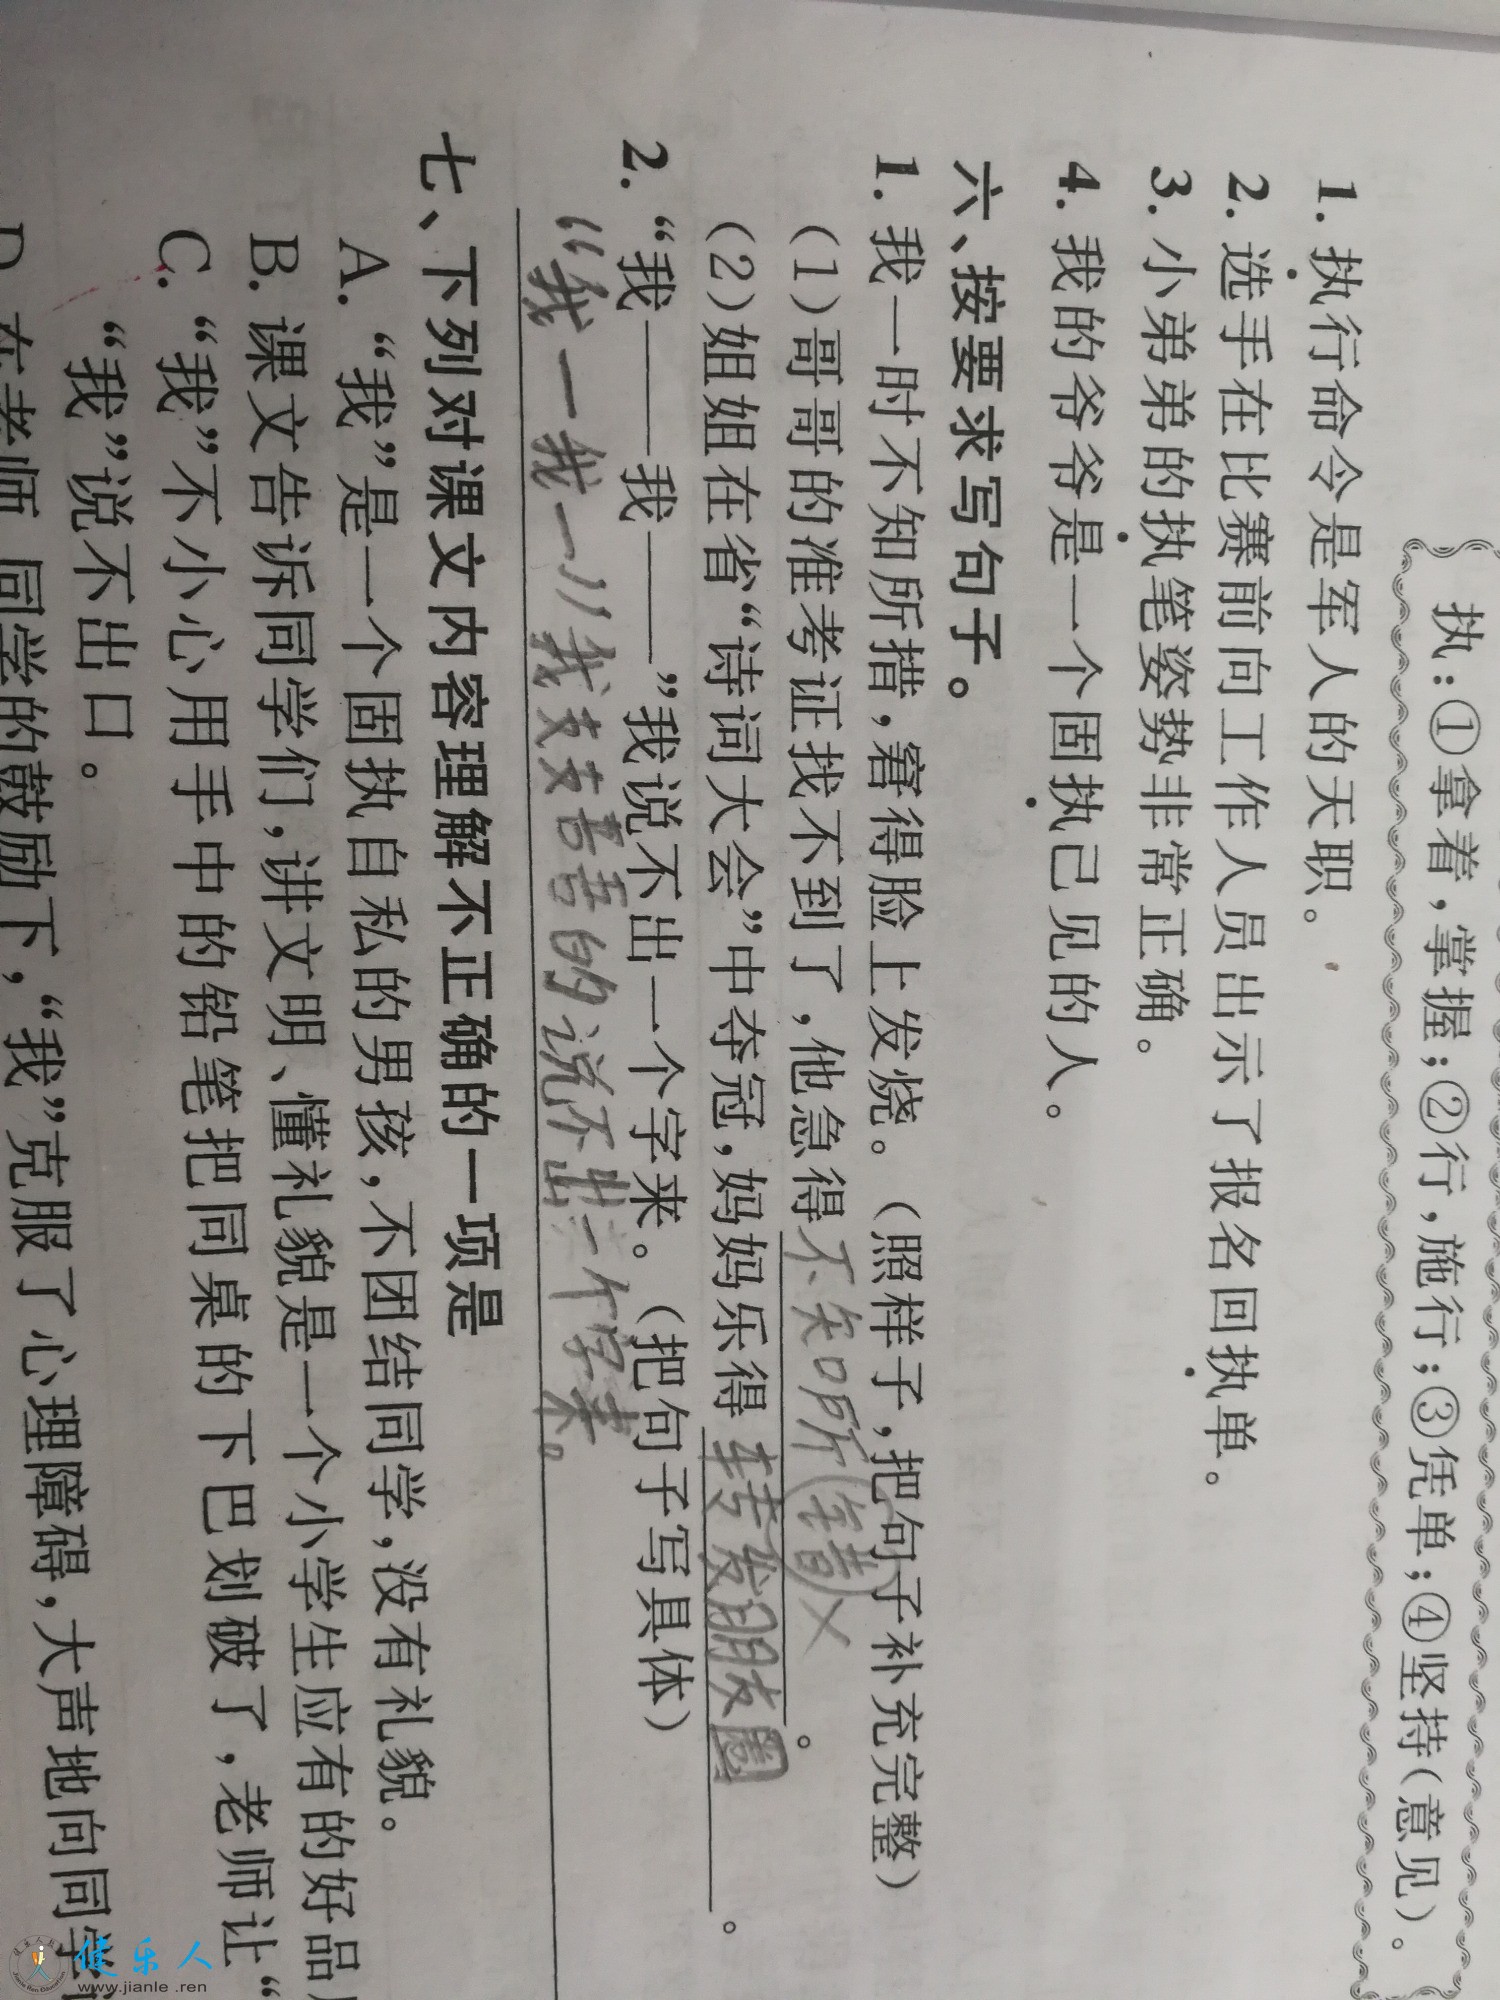 执：①拿着，掌握；②行，施行；③凭单；④坚持（意见）。
1. 执行命令是军人的天职。
2. 选手在比赛前向工作人员出示了报名回执单。
3. 小弟弟的执笔姿势非常正确。
4. 我的爷爷是一个固执己见的人。
六、按要求写句子。
1. 我一时不知所措，窘得脸上发烧。（照样子，把句子补充完整）
（1）哥哥的准考证找不到了，他急得不知所错×。
（2）姐姐在省“诗词大会”中夺冠，妈妈乐得转发朋友圈。
2. “我——我——”我说不出一个字来。（把句子写具体）
“我一我一”我支支吾吾的说不出一个字来。
七、下列对课文内容理解不正确的一项是
A. “我”是一个固执自私的男孩，不团结同学，没有礼貌。
B. 课文告诉同学们，讲文明、懂礼貌是一个小学生应有的好品
C. “我”不小心用手中的铅笔把同桌的下巴划破了，老师让“
“我”说不出口。
D. 在老师、同学的鼓励下，“我”克服了心理障碍，大声地向同学
健乐人
www.jianle.ren